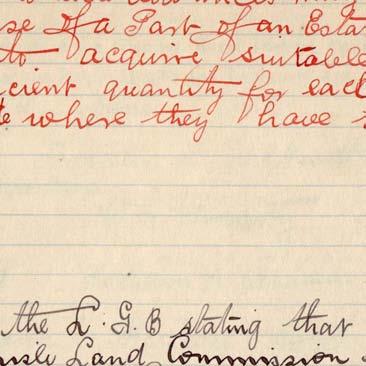 se of a Part of an Esta
to acquire suitable
cient quantity for each
te where they have
the L. G. B stating that
Land Commission